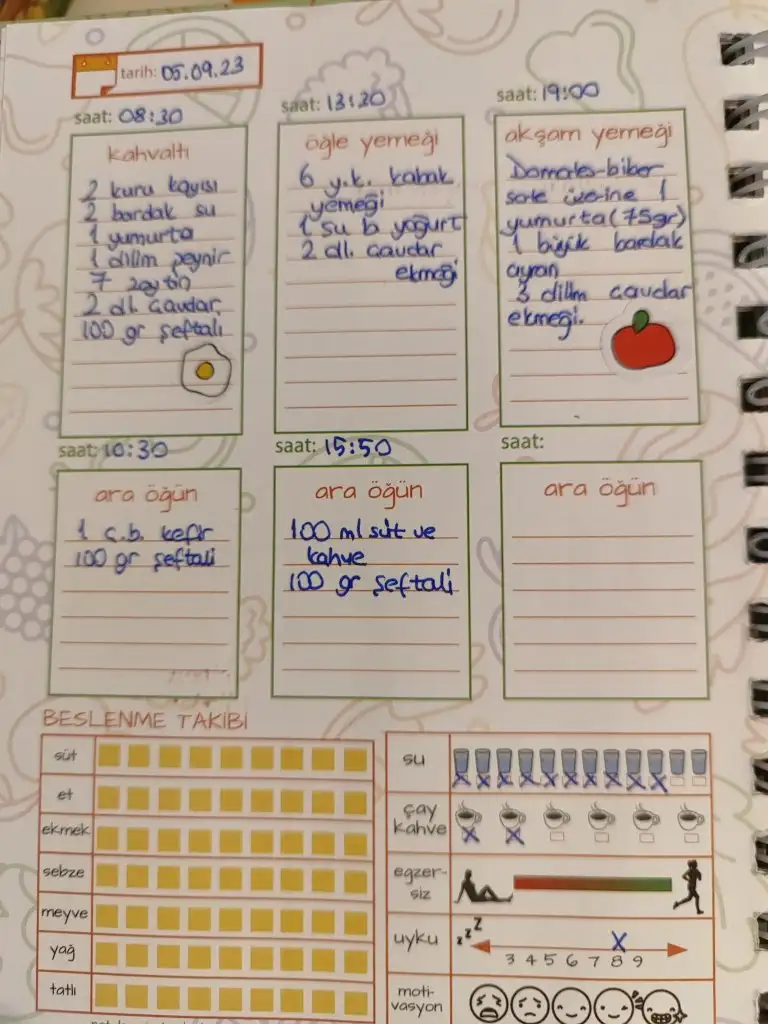 tarih: 05.09.23
saat: 08:30
kahvaltı
2 kuru kayısı
2 bardak su
1 yumurta
1 dilim peynir
7 zeytin
2 dl. çavdar
100 gr şeftali
saat: 13:20
öğle yemeği
6 y.k. kabak
yemeği
1 su b yoğurt
2 dl. çavdar
ekmeği
saat: 19:00
akşam yemeği
Domates-biber
sote üzerine 1
yumurta (75gr)
1 büyük bardak
ayran
3 dilim çavdar
ekmeği.
saat: 10:30
ara öğün
1 ç.b. kefir
100 gr şeftali
saat: 15:50
ara öğün
100 ml süt ve
kahve
100 gr şeftali
saat:
ara öğün
BESLENME TAKİBİ
süt
et
ekmek
sebze
meyve
yağ
tatlı
su
çay
kahve
egzer-
siz
uyku
zzZ
3 4 5 6 7 8 9
moti-
vasyon